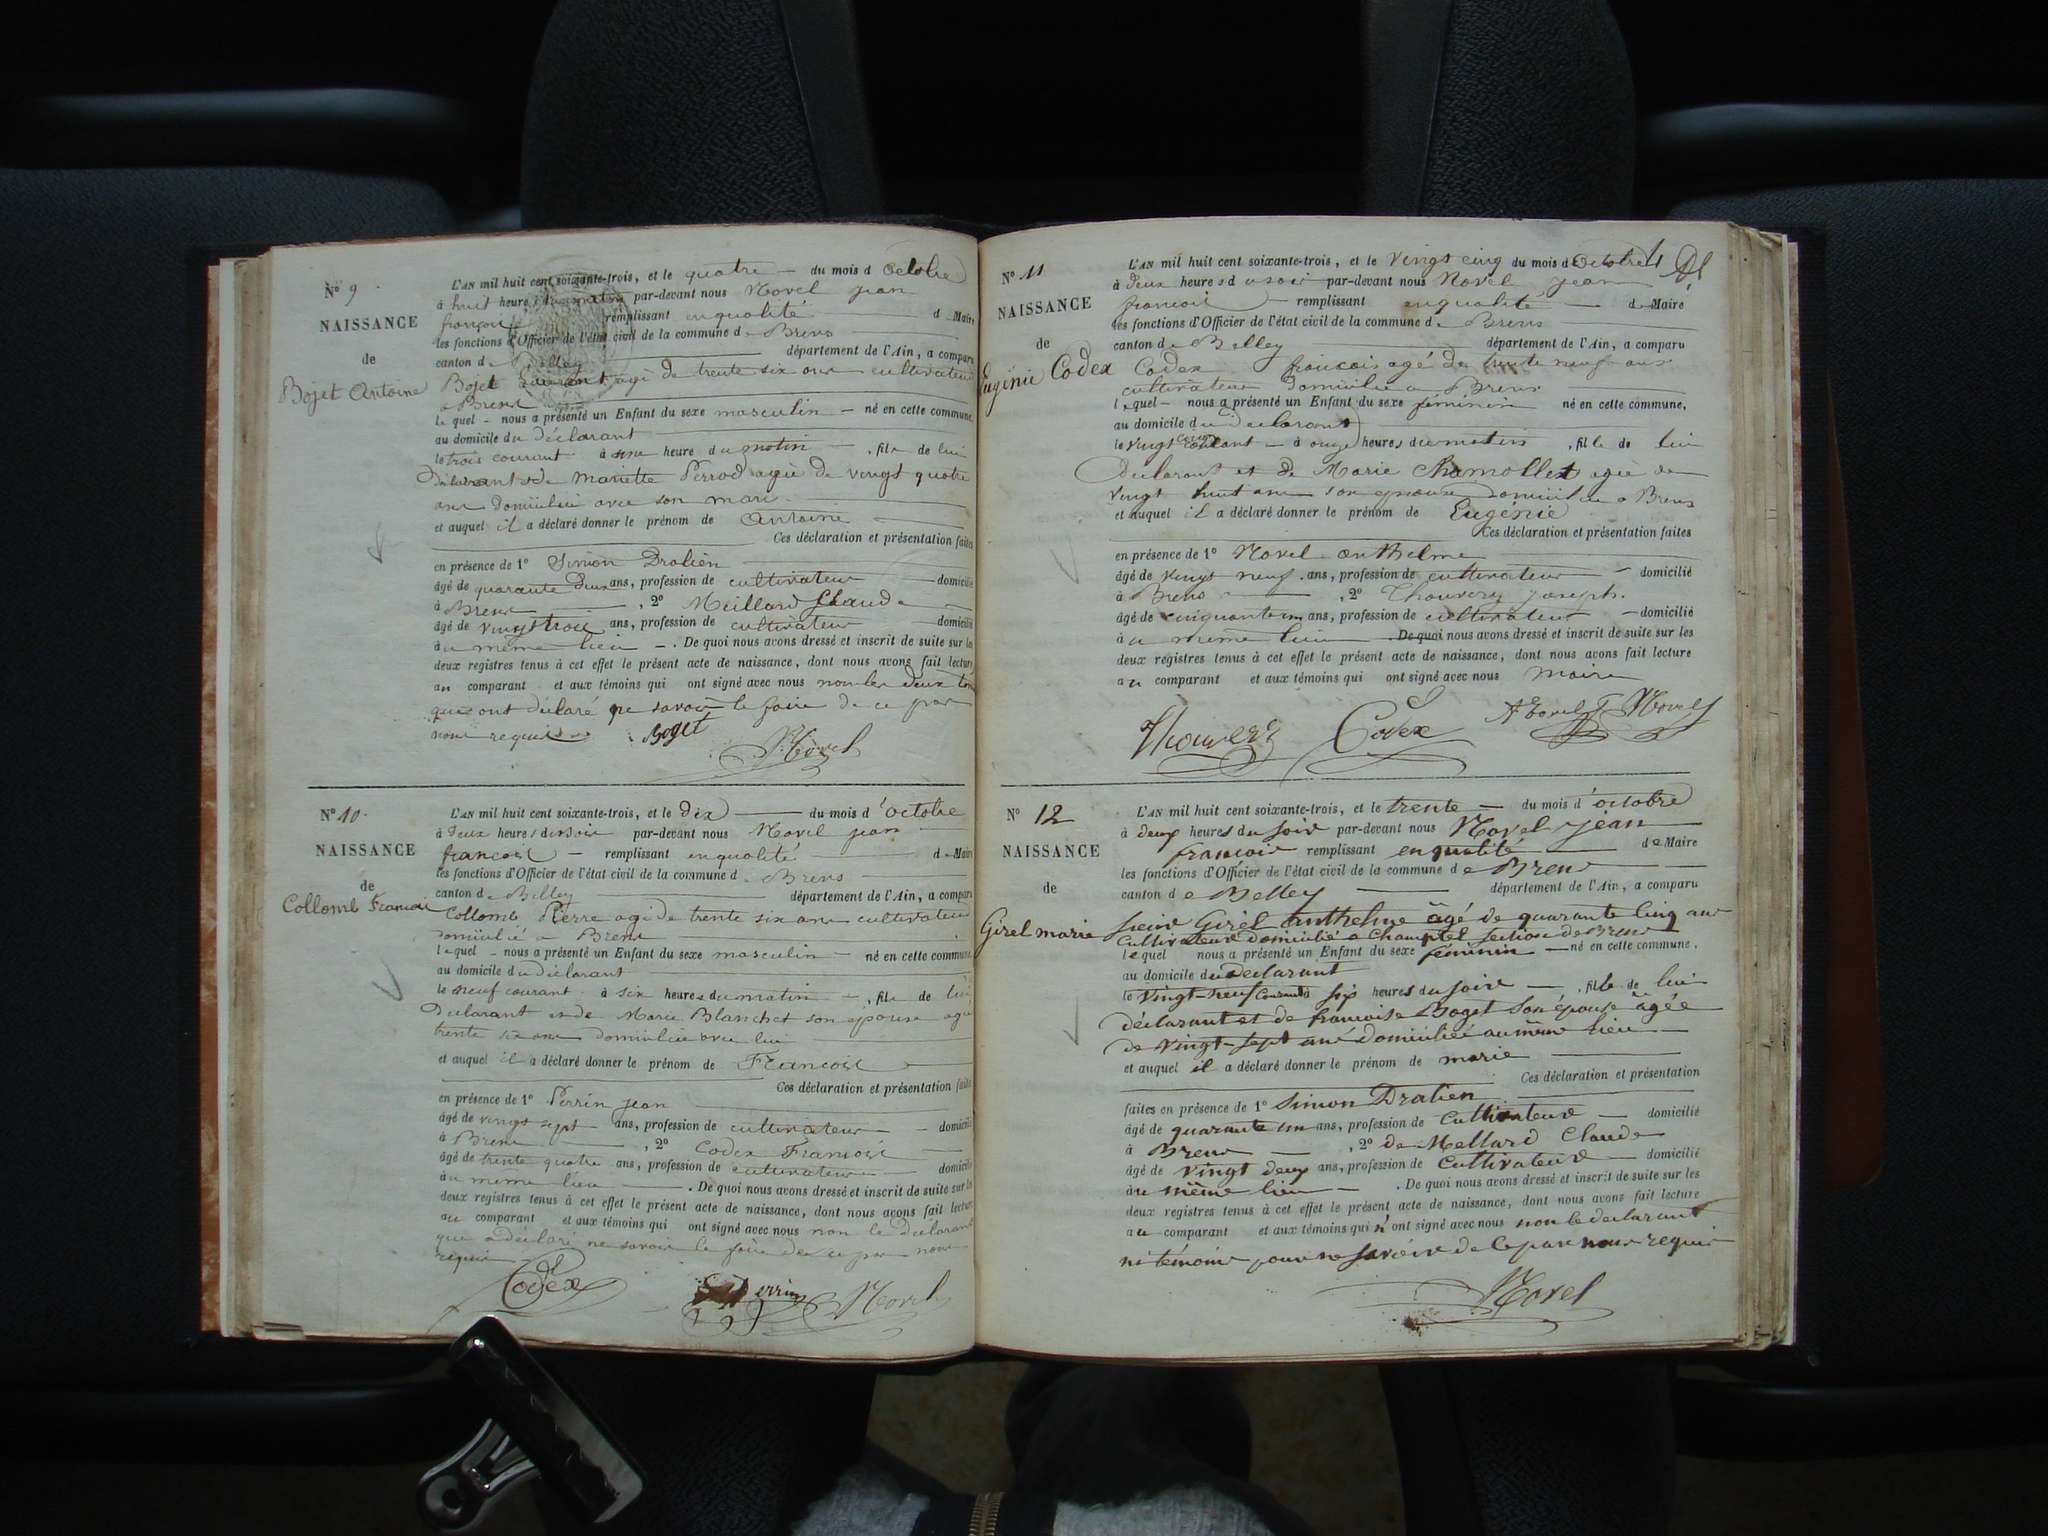 N° 9
NAISSANCE
de
Bojet Antoine
L'AN mil huit cent soixante-trois, et le quatre — du mois d'Octobre
à huit heures du matin par-devant nous Novel jean
françois remplissant en qualité de Maire
les fonctions d'Officier de l'état civil de la commune de Brens
canton de Belley département de l'Ain, a comparu
Bojet agé de trente six ans cultivateur
a Brens
lequel – nous a présenté un Enfant du sexe masculin – né en cette commune,
au domicile du déclarant
le trois courant à une heure du matin –, fils de lui
Déclarant et de Mariette Perrod agée de vingt quatre
ans domiciliée avec son mari
et auquel il a déclaré donner le prénom de Antoine
Ces déclaration et présentation faites
en présence de 1° Simon Dralien
âgé de quarante deux ans, profession de cultivateur domicilié
à Brens, 2° Meillard Claude
âgé de vingt trois ans, profession de cultivateur – domicilié
à u même lieu –. De quoi nous avons dressé et inscrit de suite sur les
deux registres tenus à cet effet le présent acte de naissance, dont nous avons fait lecture
au comparant et aux témoins qui ont signé avec nous non les deux
qui ont déclaré ne savoir le faire de ce par
nous requis
Boget Novel
N° 10
NAISSANCE
de
Collomb François
L'AN mil huit cent soixante-trois, et le dix — du mois d'octobre
à deux heures du soir par-devant nous Novel jean
francois – remplissant en qualité de Maire
les fonctions d'Officier de l'état civil de la commune de Brens
canton de Belley département de l'Ain, a comparu
Collomb Pierre agé de trente six ans cultivateur
domicilié a Brens
lequel – nous a présenté un Enfant du sexe masculin – né en cette commune,
au domicile du déclarant
le neuf courant à six heures du matin –, fils de lui
Déclarant et de Marie Blanchet son épouse agée
trente six ans domiciliée avec lui
et auquel il a déclaré donner le prénom de Francois
Ces déclaration et présentation faites
en présence de 1° Perrin jean
âgé de vingt sept ans, profession de cultivateur – domicilié
à Brens, 2° Codex Francois
âgé de trente quatre ans, profession de cultivateur domicilié
à u même lieu. De quoi nous avons dressé et inscrit de suite sur les
deux registres tenus à cet effet le présent acte de naissance, dont nous avons fait lecture
au comparant et aux témoins qui ont signé avec nous non le Déclarant
qui a déclaré ne savoir le faire de ce par nous
requis
Codex Perrin Novel
N° 11
NAISSANCE
de
Eugénie Codex
L'AN mil huit cent soixante-trois, et le vingt cinq du mois d'Octobre
à deux heures du soir par-devant nous Novel jean
francois remplissant en qualité de Maire
les fonctions d'Officier de l'état civil de la commune de Brens
canton de Belley département de l'Ain, a comparu
Codex francois agé de trente neuf ans
cultivateur domicilié a Brens
lequel – nous a présenté un Enfant du sexe féminin né en cette commune,
au domicile du déclarant
le vingt courant – à onze heures du matin, fille de lui
Declarant et de Marie Chamollet agée de
vingt huit ans son épouse domiciliée a Brens
et auquel il a déclaré donner le prénom de Eugénie
Ces déclaration et présentation faites
en présence de 1° Novel anthelme
âgé de vingt neuf ans, profession de cultivateur – domicilié
à Brens, 2° Thouvery joseph
âgé de cinquante un ans, profession de cultivateur – domicilié
à u même lieu. De quoi nous avons dressé et inscrit de suite sur les
deux registres tenus à cet effet le présent acte de naissance, dont nous avons fait lecture
au comparant et aux témoins qui ont signé avec nous Maire
Codex A Novel Novel
N° 12
NAISSANCE
de
Girel marie
L'AN mil huit cent soixante-trois, et le trente — du mois d'octobre
à deux heures du soir par-devant nous Novel jean
francois remplissant en qualité de Maire
les fonctions d'Officier de l'état civil de la commune de Brens
canton de Belley département de l'Ain, a comparu
sieur Girel anthelme âgé de quarante cinq ans
Cultivateur domicilié a Champtel section de Brens
lequel nous a présenté un Enfant du sexe féminin – né en cette commune,
au domicile du declarant
le vingt-neuf courant à six heures du soir –, fille de lui
déclarant et de francoise Boget son épouse âgée
de vingt-sept ans domiciliée au même lieu
et auquel il a déclaré donner le prénom de marie
Ces déclaration et présentation
faites en présence de 1° Simon Dralien
âgé de quarante un ans, profession de Cultivateur – domicilié
à Brens, 2° de Mellard Claude
âgé de vingt deux ans, profession de Cultivateur – domicilié
à u même lieu –. De quoi nous avons dressé et inscrit de suite sur les
deux registres tenus à cet effet le présent acte de naissance, dont nous avons fait lecture
au comparant et aux témoins qui n'ont signé avec nous non le declarant
ni témoins pour ne savoire de ce par nous requis
Novel